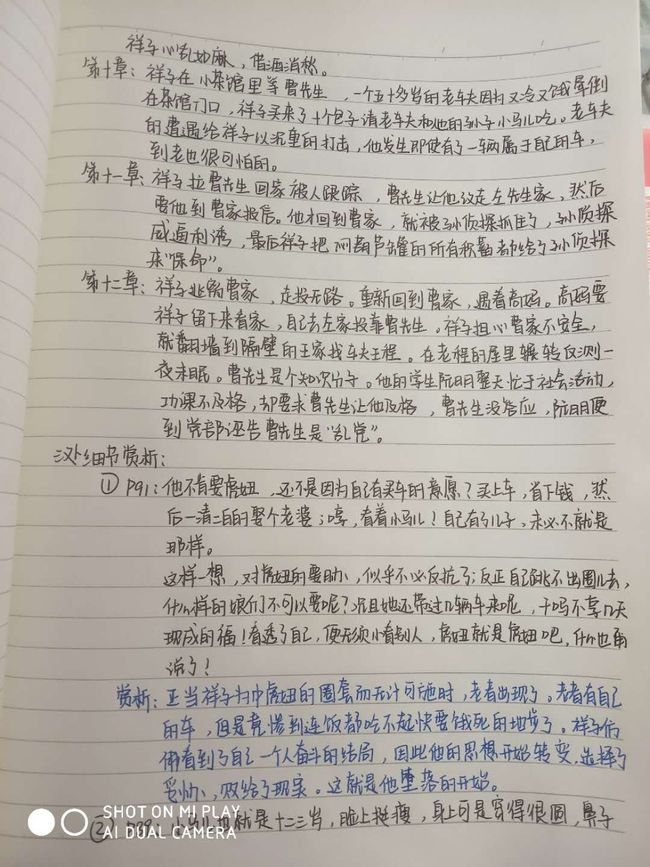 祥子心乱如麻，借酒消愁。
第十章：祥子在小茶馆里等曹先生，一个五十多岁的老车夫因为又冷又饿晕倒
在茶馆门口，祥子买来了十个包子请老车夫和他的孙子小马儿吃。老车夫
的遭遇给祥子以沉重的打击，他发生即使有了一辆属于自己的车，
到老也很可怕的。
第十一章：祥子拉曹先生回家被人跟踪，曹先生让他改走左先生家，然后
要他到曹家报信。他才回到曹家，就被孙侦探抓住了，孙侦探
威逼利诱，最后祥子把闷葫芦罐的所有积蓄都给了孙侦探
来“保命”。
第十二章：祥子逃离曹家，走投无路。重新回到曹家，遇着高妈。高妈要
祥子留下来看家，自己去左家投靠曹先生。祥子担心曹家不安全，
就翻墙到隔壁的王家找车夫王程。在老程的屋里辗转反测一
夜未眠。曹先生是个知识分子。他的学生阮明整天忙于社会活动，
功课不及格，却要求曹先生让他及格，曹先生没答应，阮明便
到党部诬告曹先生是“乱党”。
赏析：
① P91：他不肯要虎妞，还不是因为自己有买车的意愿？买上车，省下钱，然
后一清二白的娶个老婆；哼，看看小马儿！自己有了儿子，未必不就是
那样。
这样一想，对虎妞的要胁，似乎不必反抗了；反正自己跳不出圈儿去，
什么样的娘们不可以要呢？况且她还带过几辆车来呢，干吗不享几天
现成的福！看透了自己，便无须小看别人，虎妞就是虎妞吧，什么也甭
说了！
赏析：正当祥子为中虎妞的圈套而无计可施时，老者出现了。老者有自己
的车，但是竟惨到连饭都吃不起快要饿死的地步了。祥子仿
佛看到了自己一个人奋斗的结局，因此他的思想开始转变，选择了
妥协，败给了现实。这就是他堕落的开始。
② 小马儿也就是十二三岁，脸上挺瘦，身上可是穿得很圆，鼻子
SHOT ON MI PLAY
AI DUAL CAMERA